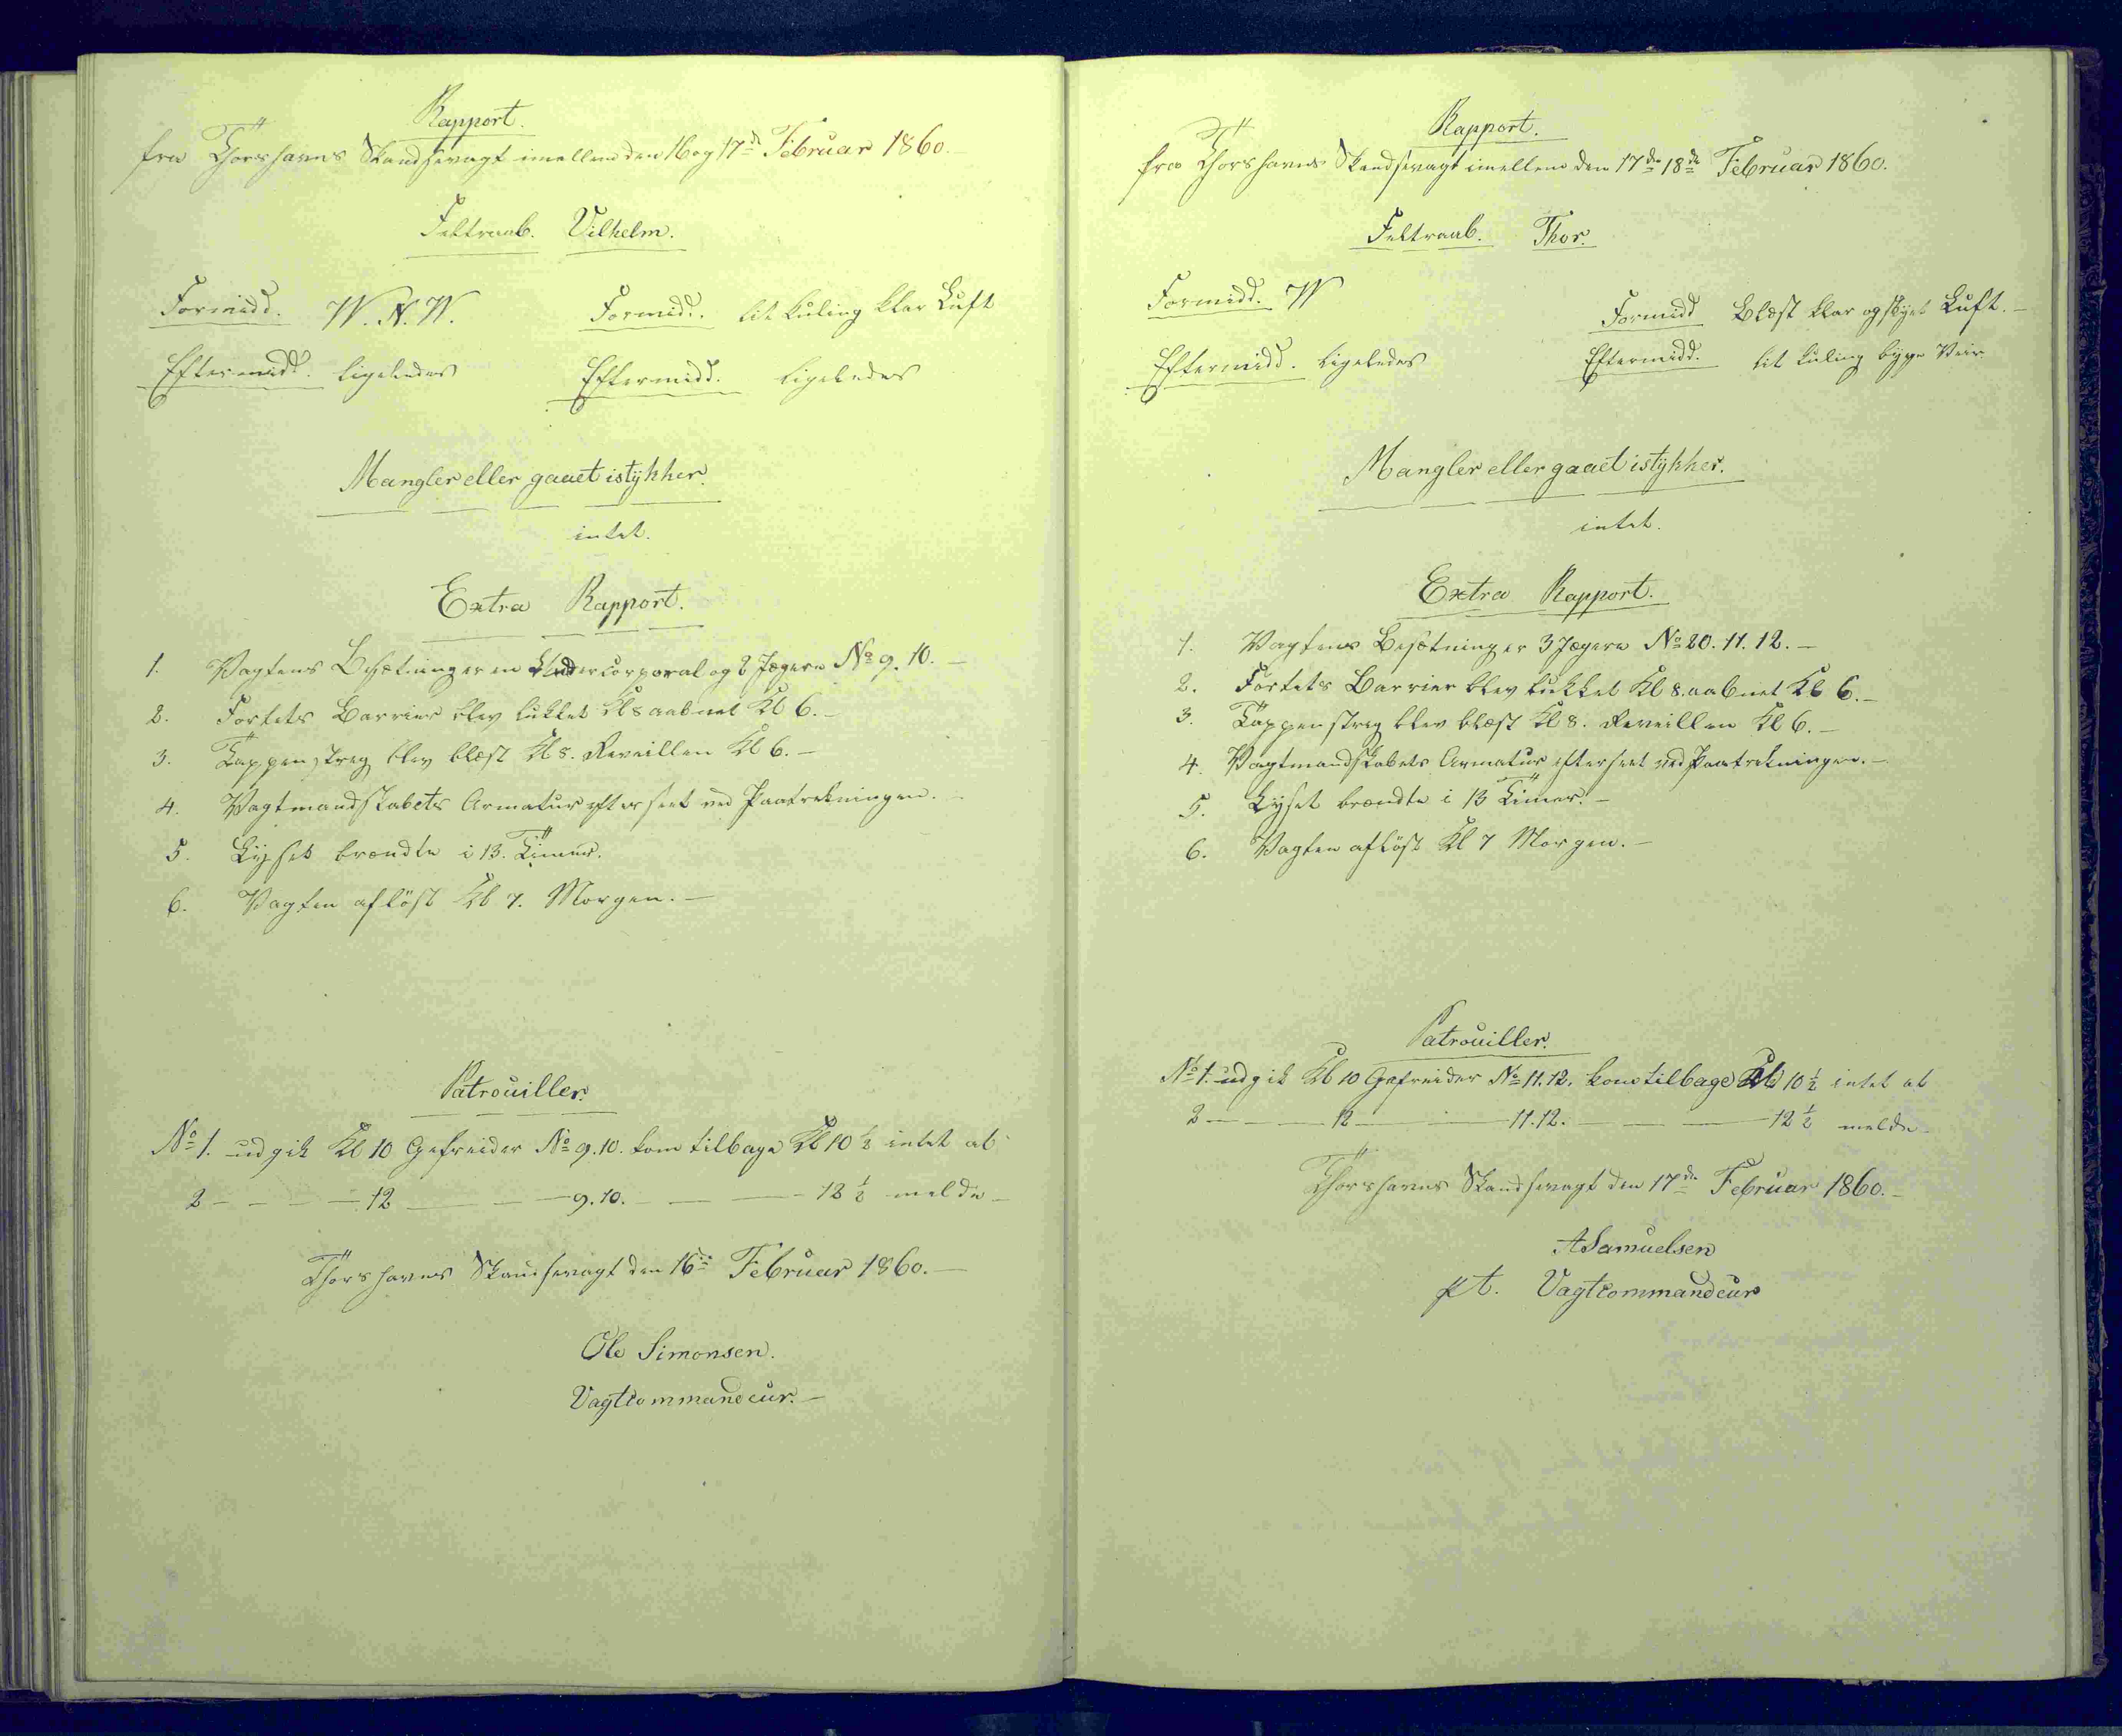 Rapport.
fra Thorshavns Skandsevagt imellem den 16 og 17de Februar 1860.
Feltraab. Vilhelm.
Formidd. W. N. W. Formidd. lit kuling klar Luft
Eftermidd. ligeledes Eftermidd. ligeledes
Mangler eller gaaet istykker.
intet.
Extra Rapport.
1. Vagtens Besætning er en Undercorporal og 2 Jægere No 9. 10. —
2. Fortets Barrier blev lukket Kl 8 aabnet Kl 6. —
3. Tappenstreg blev blæst Kl 8. Reveillen Kl 6. —
4. Vagtmandskabets Armatur efterseet ved Paatrækningen. —
5. Lyset brændte i 13. Timer.
6. Vagten aflöst Kl 7. Morgen. —
Patrouiller.
No 1. udgik Kl 10 Gefreider No 9. 10. kom tilbage Kl 10 ½ intet at
2 — — — 12 — — 9. 10. — — — 12 ½ melde —
Thorshavns Skandsevagt den 16de Februar 1860. —
Ole Simonsen.
Vagtcommandeur. —
Rapport.
fra Thorshavns Skandsevagt imellem den 17de 18de Februar 1860.
Feltraab. Thor.
Formidd. W Formidd Blæst klar og skyet Luft. —
Eftermidd. ligeledes Eftermidd. lit kuling byge Veir
Mangler eller gaaet istykker.
intet.
Extra Rapport.
1. Vagtens Besætning er 3 Jægere No 20. 11. 12. —
2. Fortets Barrier blev lukket Kl 8. aabnet Kl 6. —
3. Tappenstreg blev blæst Kl 8. Reveillen Kl 6. —
4. Vagtmandskabets Armatur efterseet ved Paatrækningen. —
5. Lyset brændte i 13 Timer. —
6. Vagten aflöst Kl 7 Morgen. —
Patrouiller.
No 1. udgik Kl 10 Gefreider No 11. 12. kom tilbage Kl 10 ½ intet at
2 — — 12 — — 11. 12. — — 12 ½ melde —
Thorshavns Skandsevagt den 17de Februar 1860. —
A Samuelsen
p t. Vagtcommandeur